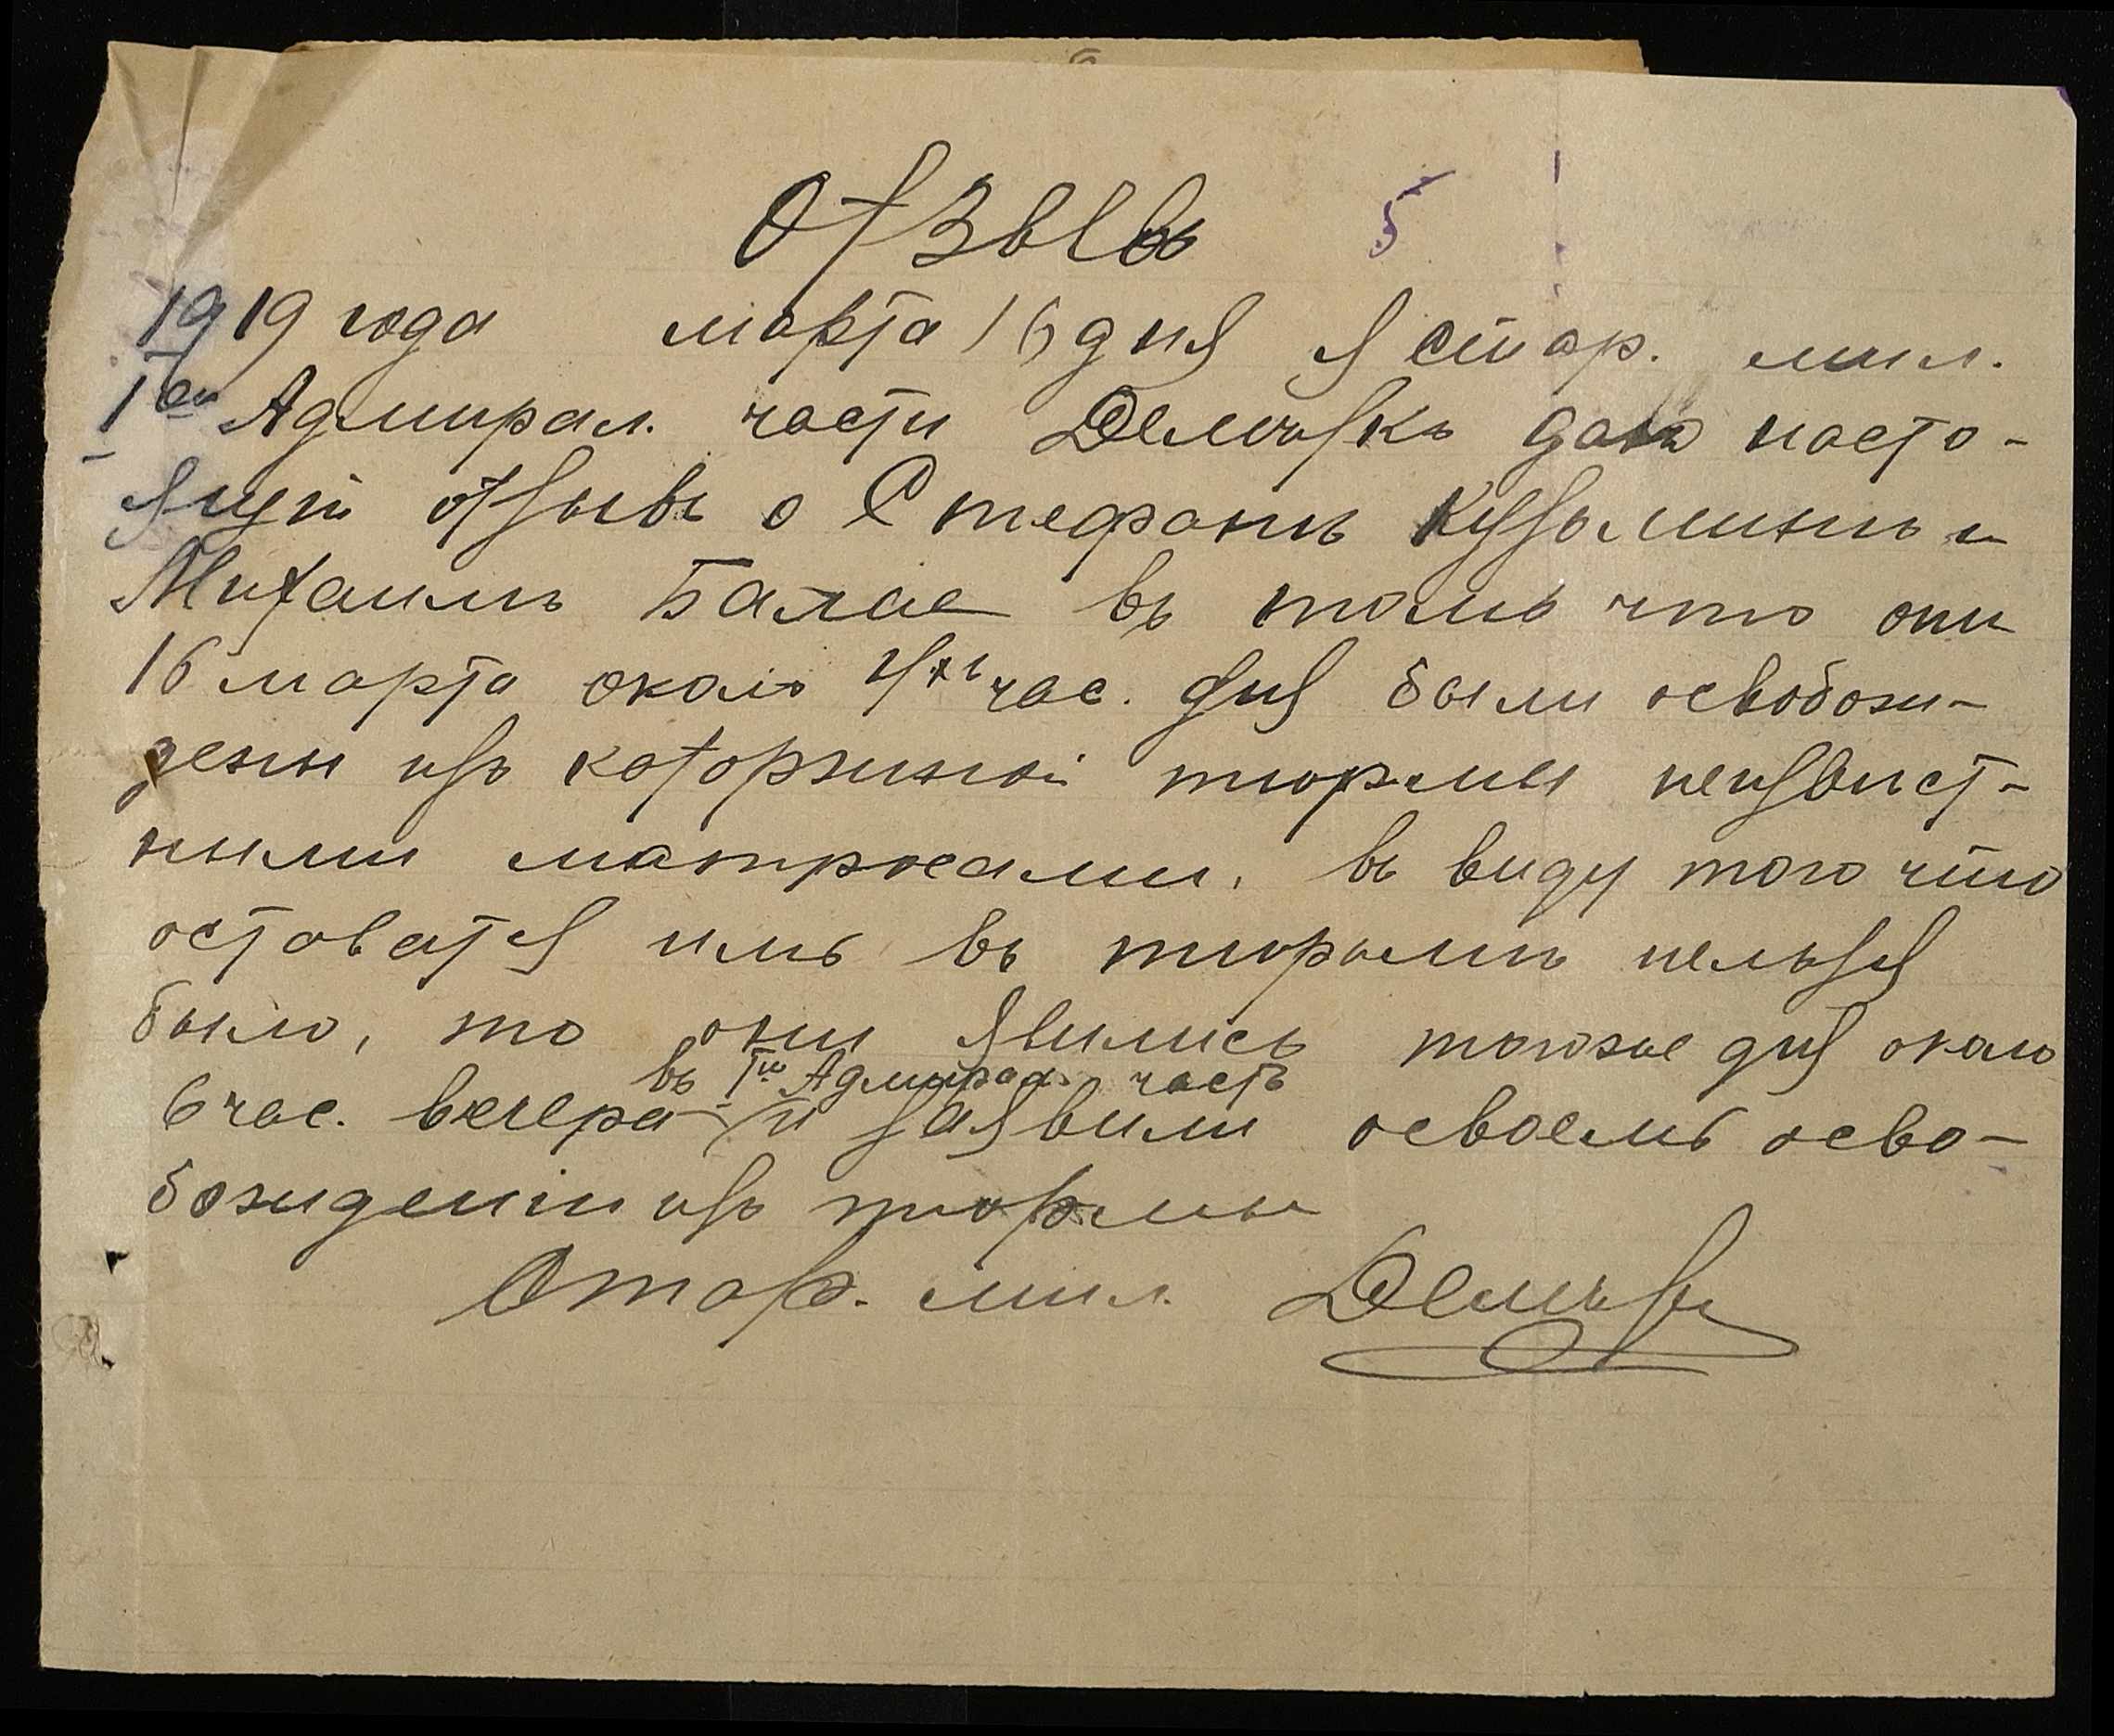 Отзывъ 5
1919 года марта 16 дня я стар. мил.
1ой Адмирал. части далъ насто-
ящій отзывъ о Стефанѣ Кузьминѣ и
Михаилѣ Балае въ томъ что они
16 марта около 4хъ час. дня были освобож-
дены изъ каторжной тюрьмы неизвѣст-
ными матросами, въ виду того что
оставатся имъ въ тюрьмѣ нельзя
было, то они явились тогоже дня около
въ Iю Адмирал. часть
6 час. вечера и заявили освоемъ осво-
божденіи изъ тюрмы
Стар. мил.